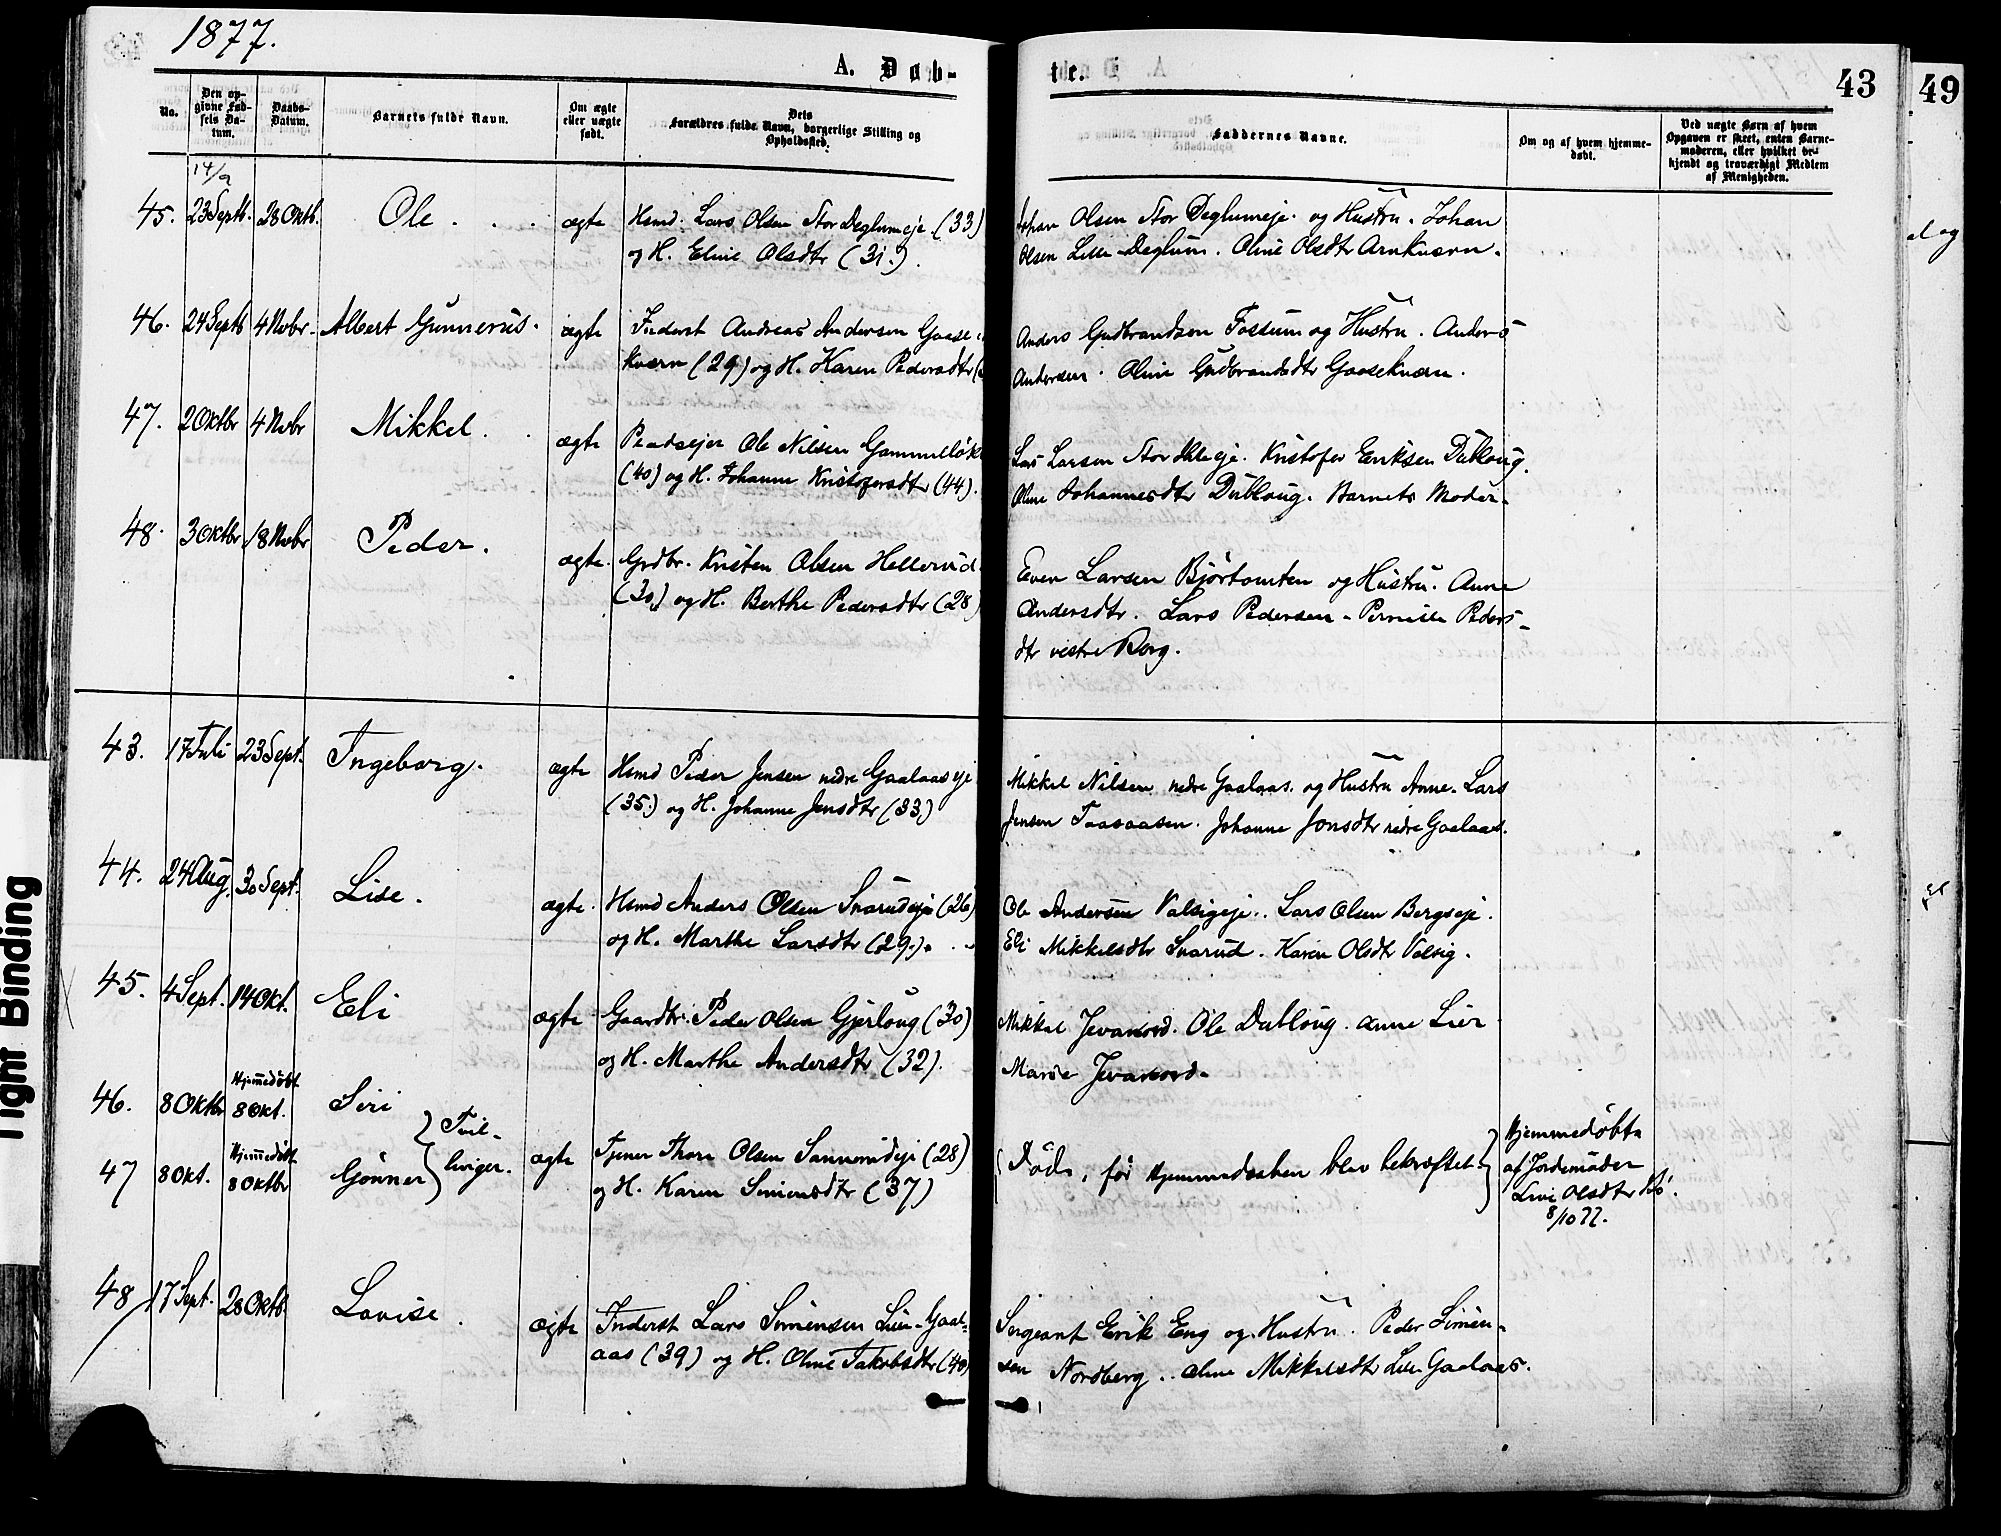 1877.
A. Døb-
te.
43
49
No.
Den op-
givne Fød-
sels Da-
tum.
Daabs-
Datum.
Barnets fulde Navn.
Om ægte
eller uægte
født.
Dets
Forældres fulde Navn, borgerlige Stilling og
Opholdssted.
Faddernes Navne.
Om og af hvem hjemme-
døbt.
Ved uægte Børn af hvem
Opgaven er skeet, enten Barne-
moderen, eller hvilket be-
kjendt og troværdigt Medlem
af Menigheden.
14/9
45. 23 Septb. 28 Oktb. Ole ægte Hsmd. Lars Olsen Stor Deglumeje (33)
og H. Eline Olsdtr (31.)
Johan Olsen Stor Deglumeje. og Hustru. Johan
Olsen Lille Deglum. Oline Olsdtr Arnkværn.
46. 24 Septb 4 Novbr. Albert Gunnerus. ægte Inderst Andreas Andersen Gaase
kværn (29) og H. Karen Pedersdtr
Anders Gudbrandsen Fossum og Hustru. Anders
Andersen. Oline Gudbrandsdtr Gaasekværn.
47. 2 Oktbr 4 Novbr Mikkel. ægte Pladsejer Ole Nilsen Gammelløk
(40) og H. Johanne Kristofersdtr (44).
Lars Larsen Stor Ihleeje. Kristofer Eriksen Dubloug.
Oline Johannesdtr Dubloug. Barnets Moder.
48. 3 Oktbr 18 Novbr Peder. ægte. Grdbr. Kristen Olsen Hellerud.
(30) og H. Berthe Pedersdtr (28)
Even Larsen Bjørtomten og Hustru. Anne
Andersdtr. Lars Pedersen. Pernille Peders-
dtr vestre Berg.
43. 17 Juli 23 Sept. Ingeborg. ægte Hsmd Peder Jensen nedre Gaalaas eje
(35.) og H. Johanne Jensdtr (33)
Mikkel Nilsen nedre Gaalaas. og Hustru Anne. Lars
Jensen Taasaasen. Johanne Jonsdtr nedre Gaalaas.
44. 24 Aug. 30 Sept. Lise. ægte. Hsmd Anders Olsen Snarudeje (26)
og H. Marthe Larsdtr (29.).
Ole Andersen Valsigeje.. Lars Olsen Bergseje.
Eli Mikkelsdtr Snarud. Karen Olsdtr Valsig.
45. 4 Sept. 14 Okt. Eli ægte Gaardbr. Peder Olsen Gjerloug (30)
og H. Marthe Andersdtr (32).
Mikkel Jevanord. Ole Dubloug. Anne Lier
Marie Jevanord.
46. 8 Oktbr Hjemmedøbt
8 Okt. Siri
Tvil-
linger.
47 8 Okt. Hjemmedøbt
8 Oktbr Gønner ægte Tjener Thore Olsen Sannerudeje (28)
og H. Karen Simensdtr (37)
Døde, før Hjemmedaaben blev bekræftet
Hjemmedøbte
af Jordemoder
Live Olsdtr Bø.
8/10 77.
48 17 Sept. 28 Oktb. Lovise. ægte Inderst Lars Simensen Lille-Gaal-
aas (39) og H. Oline Jakobsdtr (40)
Sergeant Erik Eng og Hustru. Peder Simen-
sen Nordberg.. Oline Mikkelsdtr Lille Gaalaas.
Tight Binding